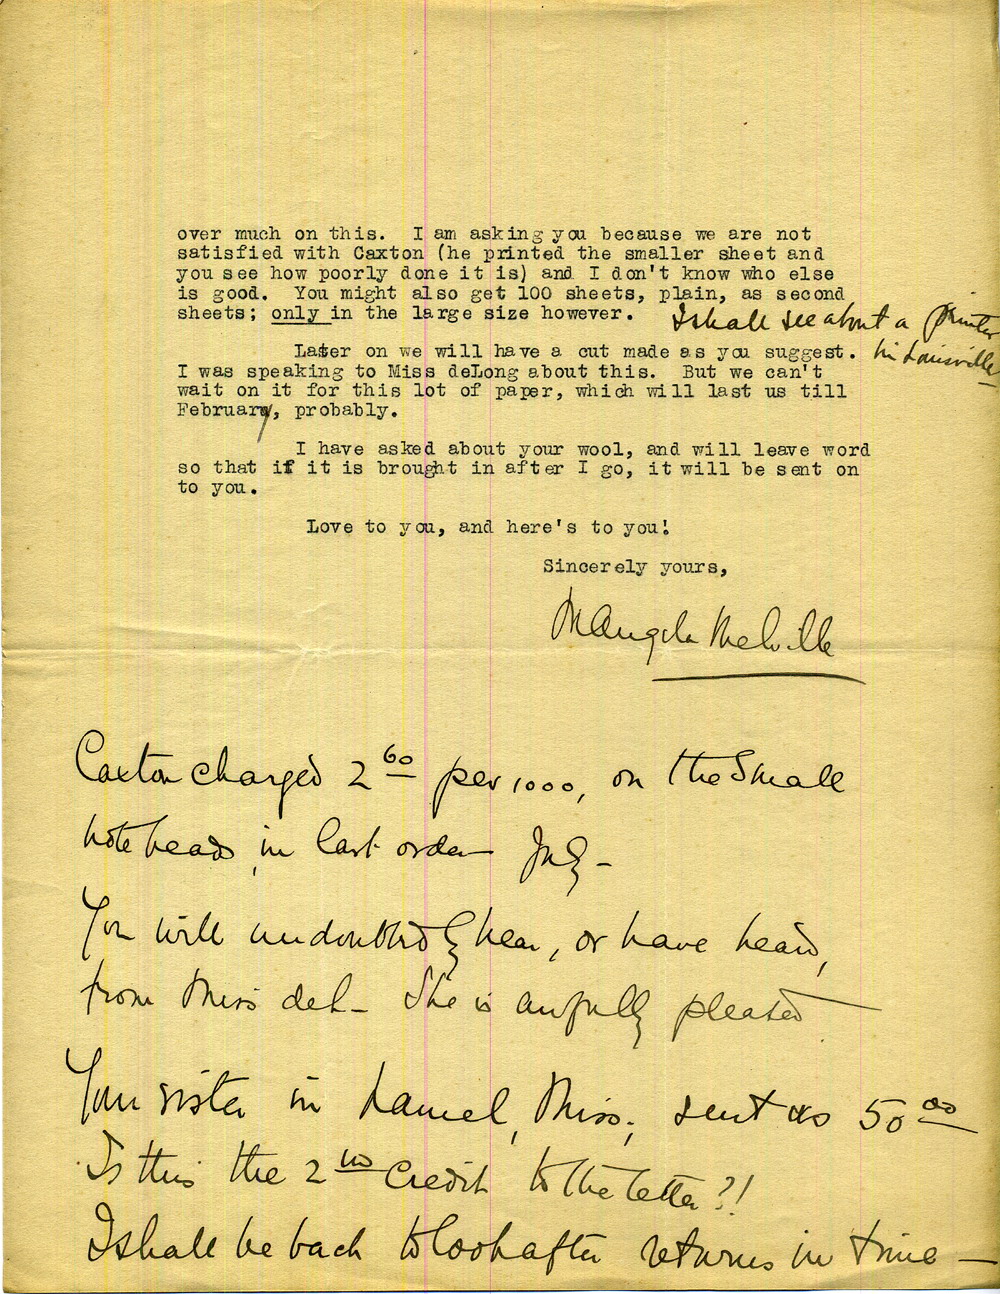 over much on this.  I am asking you because we are not
satisfied with Caxton (he printed the smaller sheet and
you see how poorly done it is) and I don't know who else
is good.  You might also get 100 sheets, plain, as second
sheets; only in the large size however.
I shall see about a printer
in Louisville
Later on we will have a cut made as you suggest.
I was speaking to Miss deLong about this.  But we can't
wait on it for this lot of paper, which will last us till
February, probably.
I have asked about your wool, and will leave word
so that if it is brought in after I go, it will be sent on
to you.
Love to you, and here's to you!
Sincerely yours,
M Angela Melville
Caxton charged 2 60 per 1000, on the small
note heads, in last order July –
You will undoubtedly hear, or have heard,
from Miss deL – She is awfully pleased
Your sister in Laurel, Miss; sent us 50 00
Is this the 2nd credit to the letter?!
I shall be back to look after returns in time –